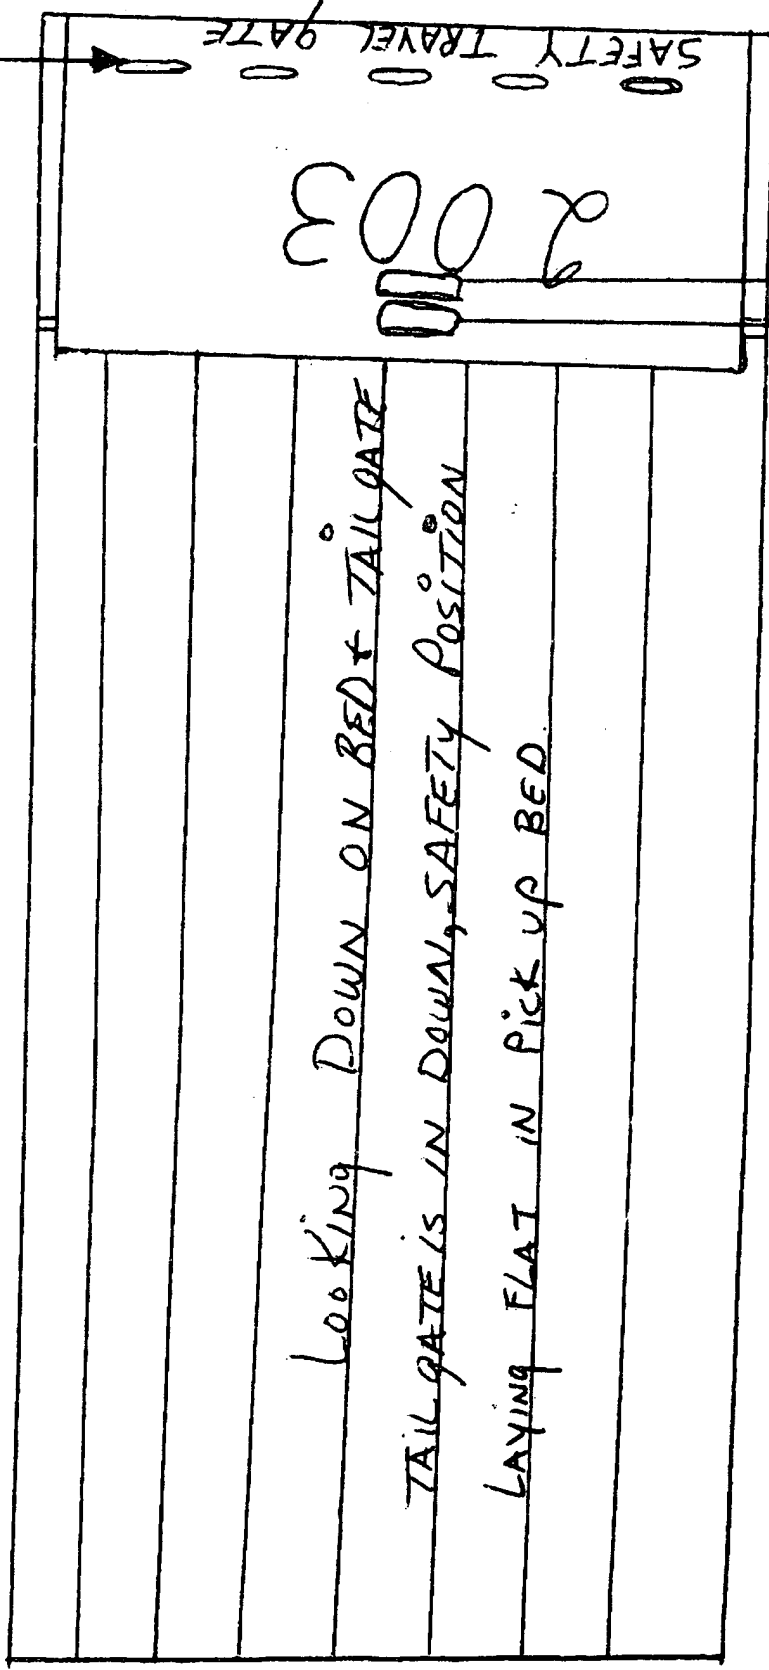 SAFETY TRAVEL GATE
2003
LOOKING DOWN ON BED + TAILGATE
TAILGATE IS IN DOWN, SAFETY POSITION
LAYING FLAT IN PICK UP BED.